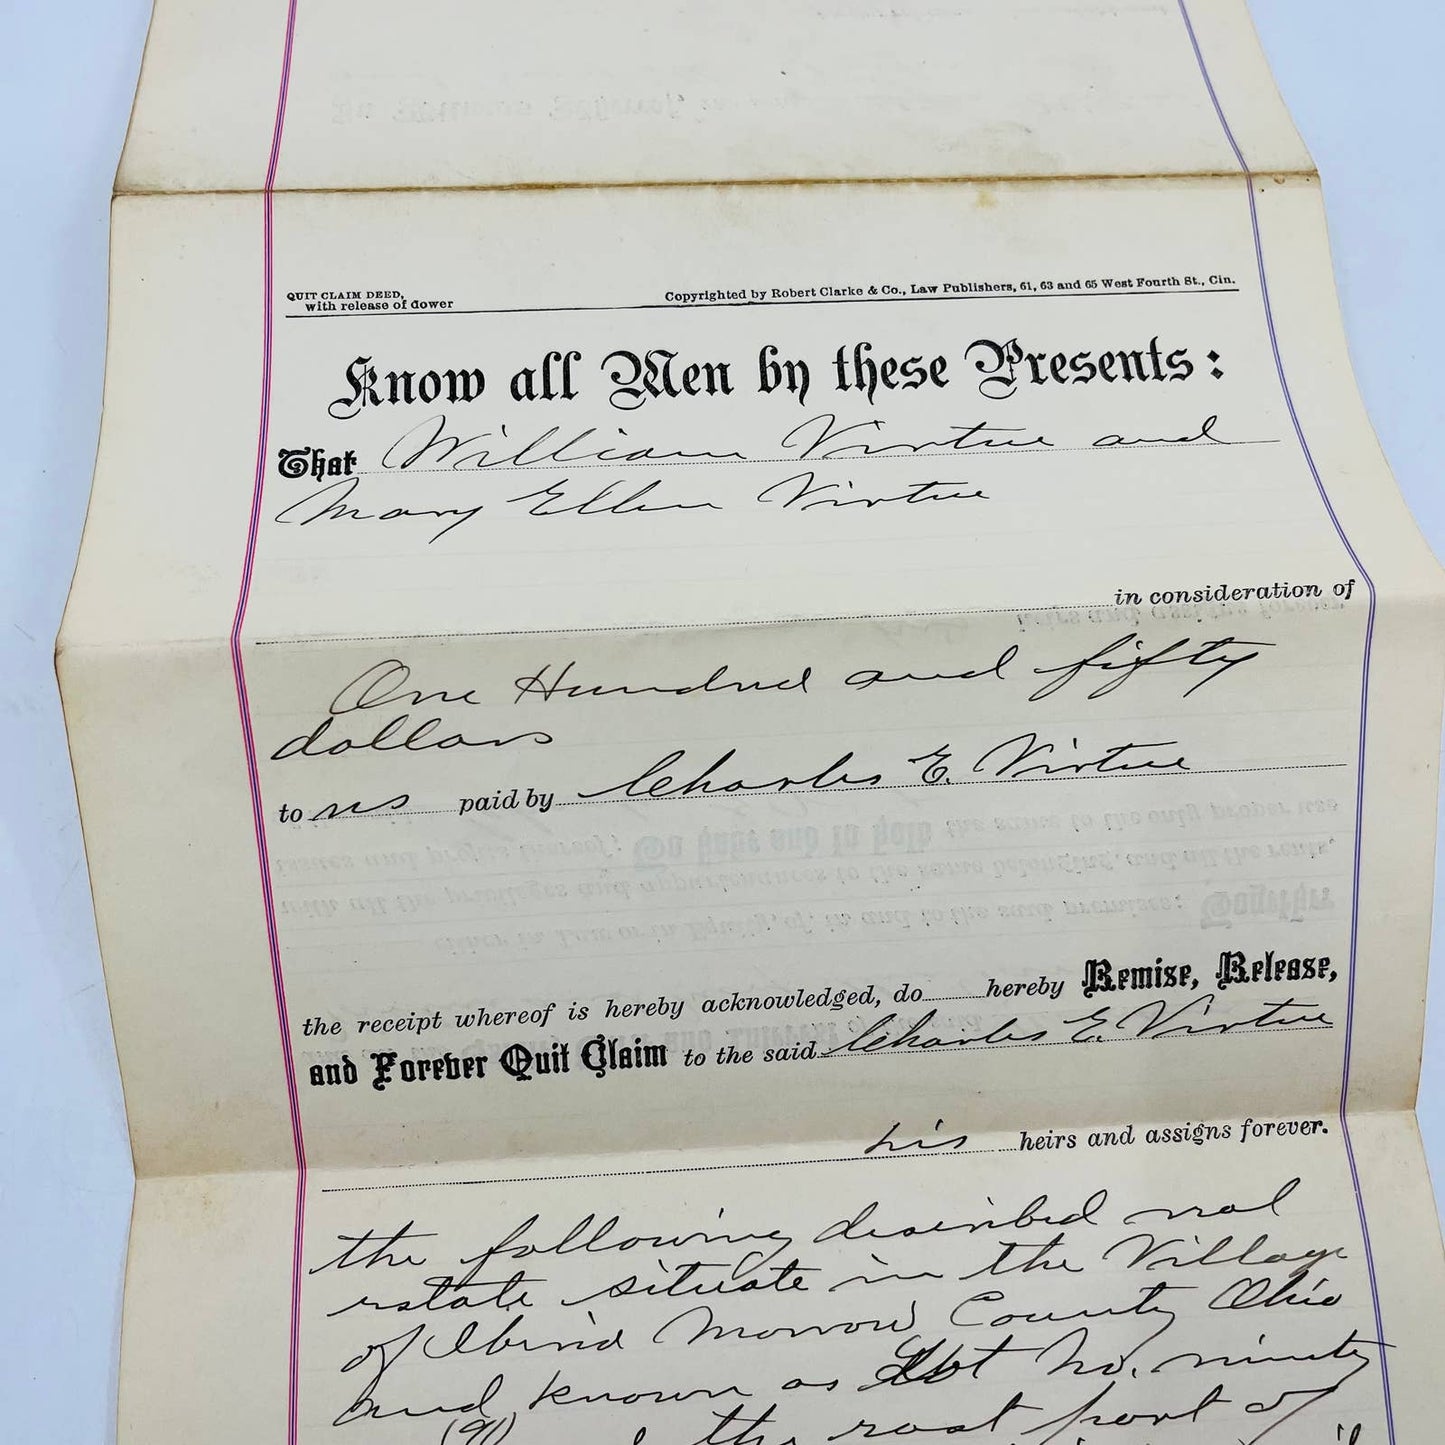 QUIT CLAIM DEED,
with release of dower
Copyrighted by Robert Clarke & Co., Law Publishers, 61, 63 and 65 West Fourth St., Cin.
Know all Men by these Presents:
That William Virtue and
Mary Ellen Virtue
in consideration of
One Hundred and fifty
dollars
to us paid by Charles E. Virtue
the receipt whereof is hereby acknowledged, do hereby Remise, Release,
and Forever Quit Claim to the said Charles E. Virtue
his heirs and assigns forever.
the following described real
estate situate in the Village
of Iberia Morrow County Ohio
and known as Lot No. ninety
the east part of